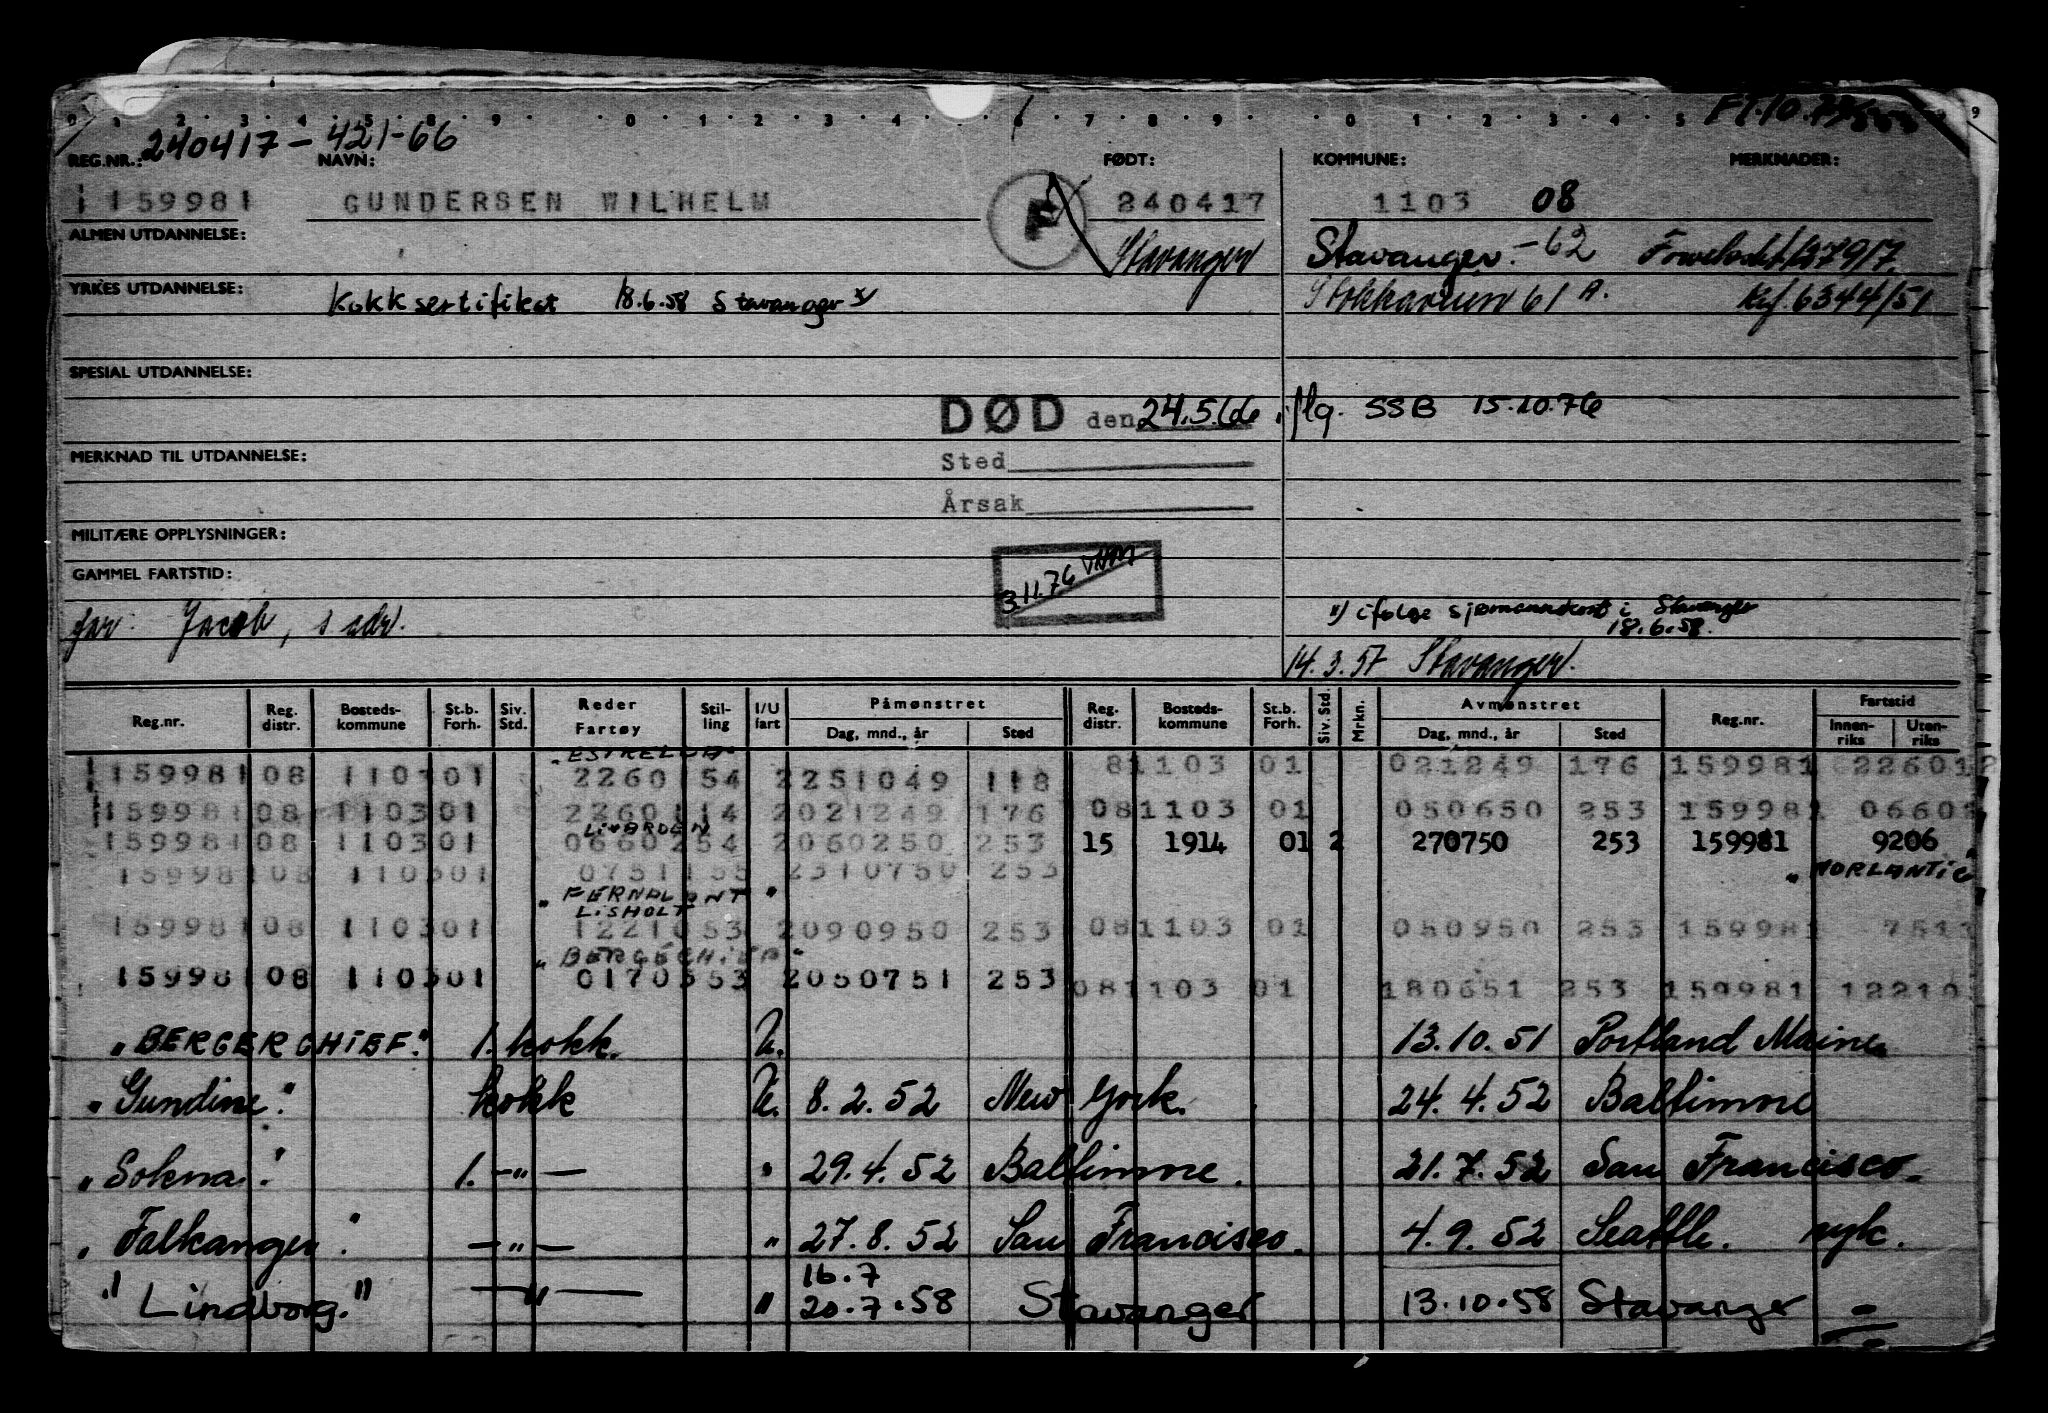 240417-421-66
REG.NR.: NAVN: FØDT: KOMMUNE: MERKNADER:
159981 GUNDERSEN WILHELM F 240417 1103 08
ALMEN UTDANNELSE: Stavanger Stavanger.-62
YRKES UTDANNELSE: Kokksertifikat 18.6.58 Stavanger x) 61 A. 6344/51
SPESIAL UTDANNELSE:
DØD den 24.5.66 iflg. SSB 15.10.76
MERKNAD TIL UTDANNELSE: Sted
Årsak
MILITÆRE OPPLYSNINGER:
GAMMEL FARTSTID: 3.11.76
far: Jacob, s adr. x) ifølge sjømannskort i Stavanger
18.6.58.
14.3.57 Stavanger.
Reg.nr. Reg. distr. Bosteds-kommune St.b. Forh. Siv. Std. Reder Fartøy Stil-ling I/U fart Påmønstret Dag, mnd., år Sted Reg. distr. Bosteds-kommune St.b. Forh. Siv. Std. Mrkn. Avmønstret Dag, mnd., år Sted Reg.nr. Fartstid Innen-riks Uten-riks
159981 08 1103 01 2260 154 2251049 118 81103 01 021249 176 159981 22601
159981 08 1103 01 2260 114 2021249 176 081103 01 050650 253 159981 0660
159981 08 1103 01 0660 254 2060250 253 15 1914 01 2 270750 253 159981 9206
159981 08 1103 01 0751 155 2310750 253 "NORLANTIC
"FERNPLANT"
LISHOLT
159981 08 1103 01 1221 053 2090950 253 081103 01 050950 253 159981 751
159981 08 1103 01 0170 353 2050751 253 081103 01 180651 253 159981 12210
"BERGERCHIEF." 1. kokk. U. 13.10.51 Portland Maine
"Gundine." kokk U. 8.2.52 New York. 24.4.52 Baltimore
"Sokna." 1. -"- " 29.4.52 Baltimore. 21.7.52 San Francisco.
"Falkanger." -"- " 27.8.52 San Francisco. 4.9.52 Seattle. syk.
16.7
"Lindborg." -"- " 20.7.58 Stavanger 13.10.58 Stavanger